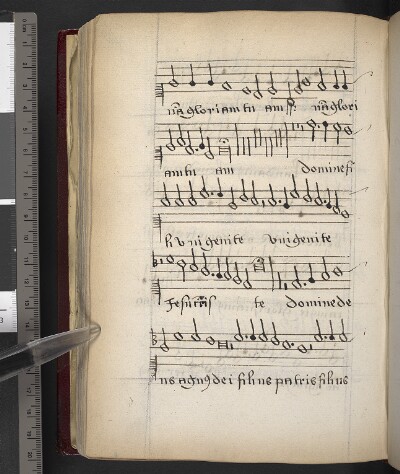 nā gloriam tu am ij: nā glori
am tu am domine fi
li vnigenite vnigenite
Jesu xp̄s te domine de
us agnꝰ dei filius patris filius